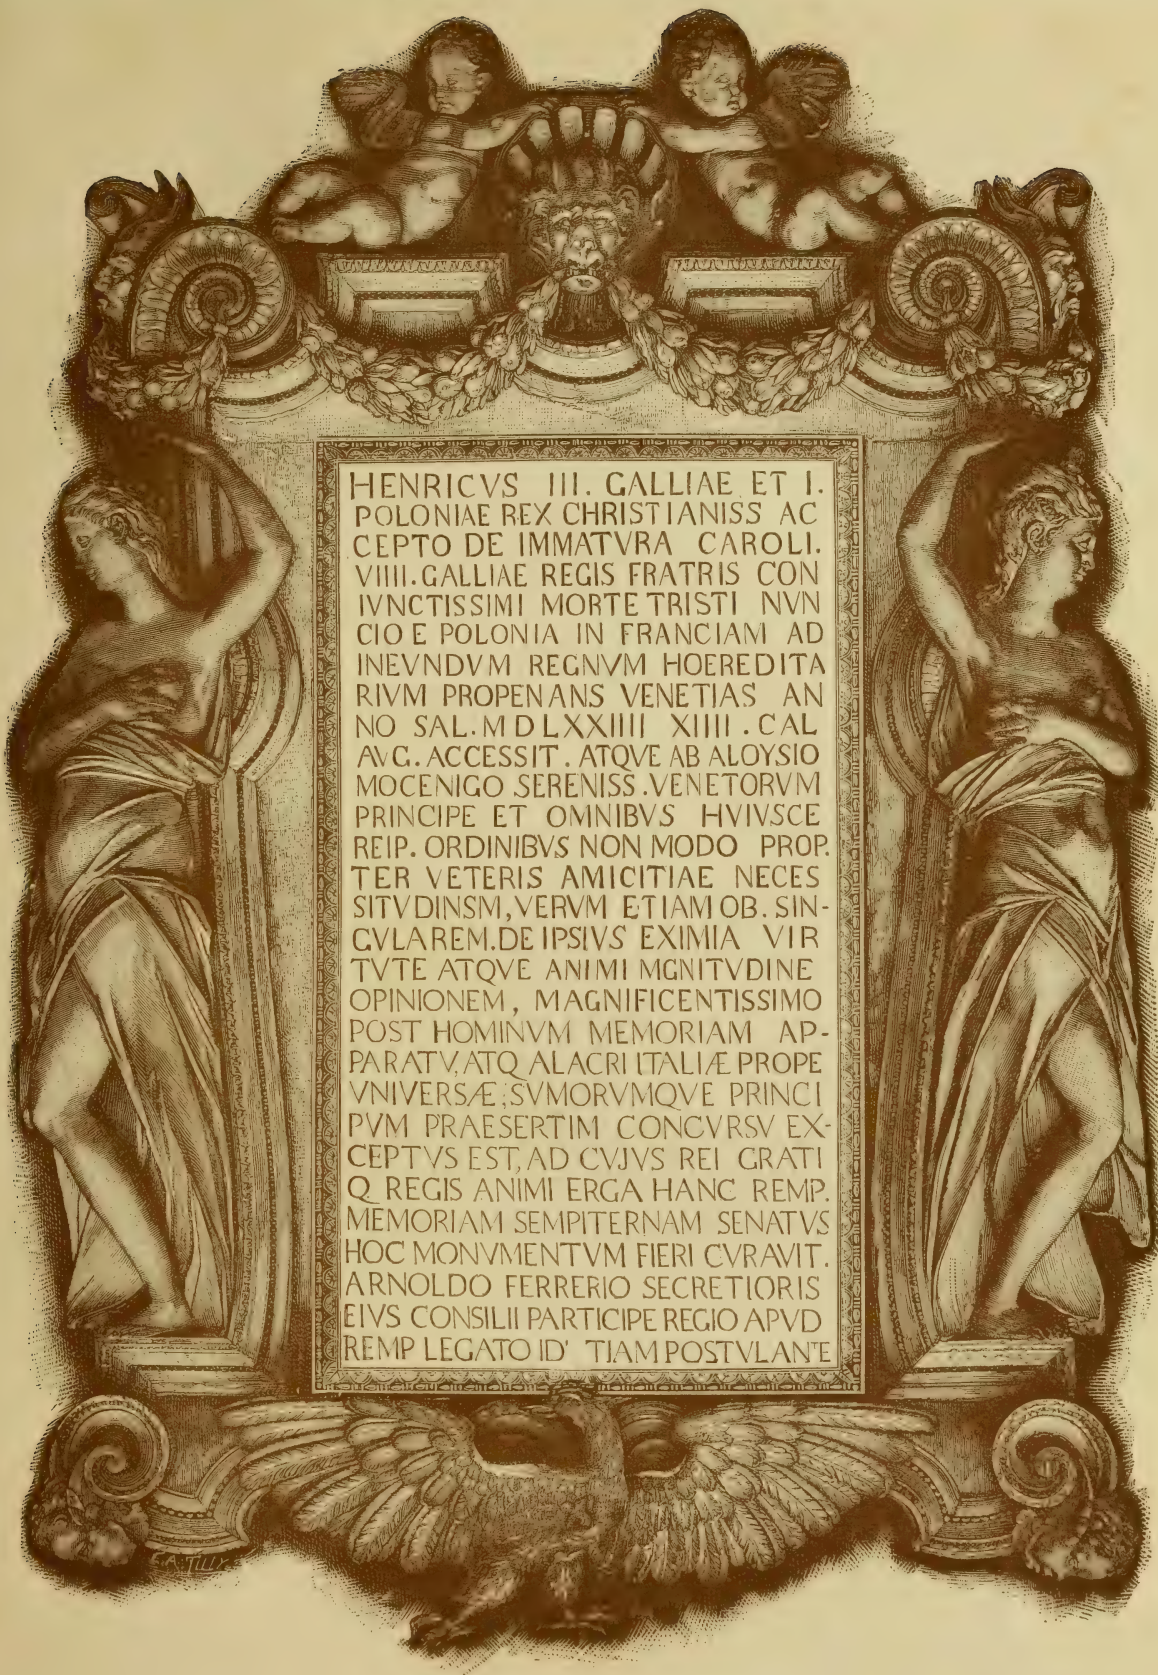 HENRICVS III. GALLIAE ET I.
POLONIAE REX CHRISTIANISS AC
CEPTO DE IMMATVRA CAROLI.
VIIII. GALLIAE REGIS FRATRIS CON
IVNCTISSIMI MORTE TRISTI NVN
CIO E POLONIA IN FRANCIAM AD
INEVNDVM REGNVM HOEREDITA
RIVM PROPENANS VENETIAS AN
NO SAL. MDLXXIIII XIIII. CAL
AVG. ACCESSIT. ATQVE AB ALOYSIO
MOCENIGO SERENISS. VENETORVM
PRINCIPE ET OMNIBVS HVIVSCE
REIP. ORDINIBVS NON MODO PROP.
TER VETERIS AMICITIAE NECES
SITVDINSM, VERVM ETIAM OB. SIN-
GVLAREM. DE IPSIVS EXIMIA VIR
TVTE ATQVE ANIMI MGNITVDINE
OPINIONEM, MAGNIFICENTISSIMO
POST HOMINVM MEMORIAM AP-
PARATV, ATQ ALACRI ITALIÆ PROPE
VNIVERSÆ; SVMORVMQVE PRINCI
PVM PRAESERTIM CONCVRSV EX-
CEPTVS EST, AD CVJVS REI GRATI
Q REGIS ANIMI ERGA HANC REMP.
MEMORIAM SEMPITERNAM SENATVS
HOC MONVMENTVM FIERI CVRAVIT.
ARNOLDO FERRERIO SECRETIORIS
EIVS CONSILII PARTICIPE REGIO APVD
REMP LEGATO ID' TIAM POSTVLANTE
E.A. TILLY